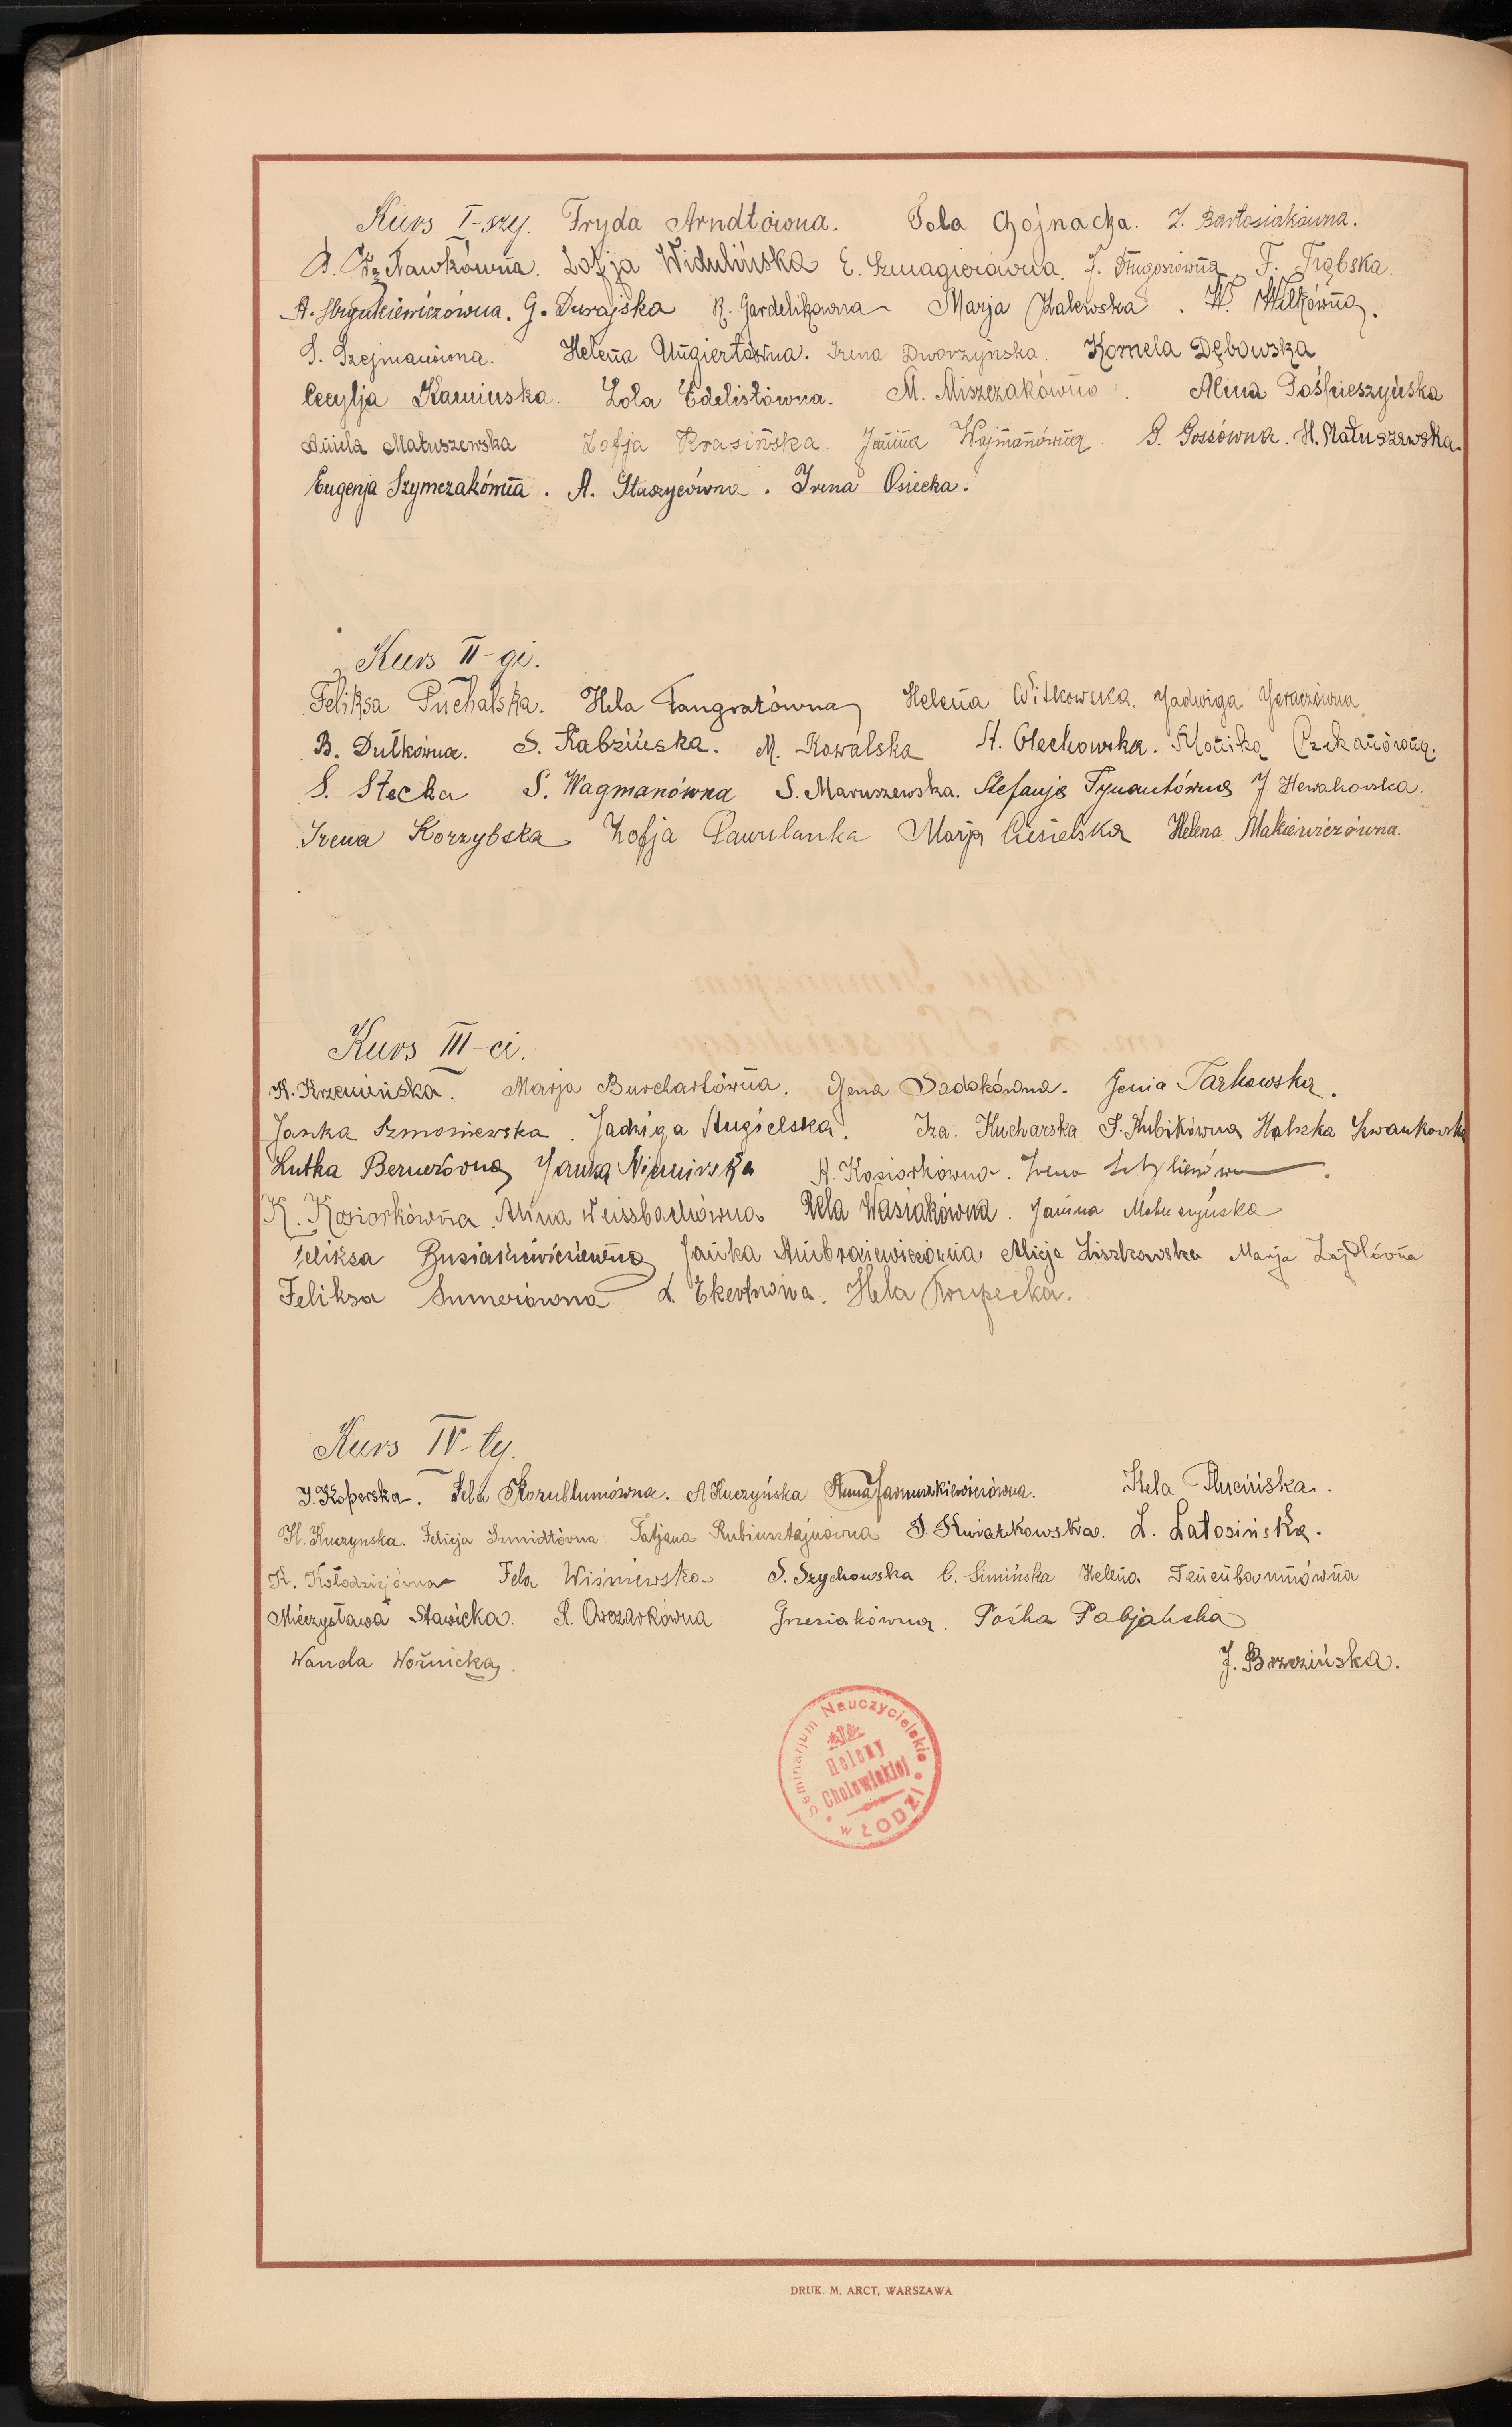 Kurs I-szy. Fryda Arndtówna. Pola Chojnacka. J. Bartosiakówna.
Zofja Widulińska E. Szmagierówna. J. Długoszówna F. Trąbska.
G. Durajska R. Gardelikówna Marja Zalewska. W. Wilkówna.
S. Szejmanówna. Helena Ungiertówna. Irena Dworzyńska Kornela Dębowska
Cecylja Kamińska. Lola Edelistówna. M. Miszczakówna. Alina Pośpieszyńska
Aniela Matuszewska Zofja Krasińska. Janina Wajmanówna. G. Gossówna. H. Matuszewska.
Eugenja Szymczakówna. A. Staszycówna. Irena Osiecka.
Kurs II-gi.
Feliksa Puchalska. Hela Langratówna Helena Witkowska. Jadwiga
B. Dutkówna. S. Kabzińska. M. Kowalska St. Olechowska. Monika
S. Stecka S. Wagmanówna S. Maruszewska. Stefanja Tynautówna J.
Irena Korzybska Zofja Pawulanka Marja Ciesielska Helena Makiewiczówna.
Kurs III-ci.
K. Krzemińska. Marja Burchartówna. Gena Sadokówna. Jenia Tarkowska.
Janka Szmoniewska. Jadwiga Angielska. Iza. Kucharska S. Kubikówna Halszka Szwankowska
Lutka Bernerówna Janka Niemirska A. Kosiorkówna. Irena
K. Kosiorkówna. Alina Weissbachówna Rela Wasiakówna. Janina
Feliksa Busiakiewiczówna Janka Ambroziewiczówna Alicja Liszkowska Marja Zajdlówna
Feliksa Sumerówna L. Ekertówna. Hela Krupecka.
Kurs IV-ty.
J. Koperska. Fela Kornblumówna. A Kuczyńska Anna Januszkiewiczówna. Hela Rucińska.
H. Kuczynska. Felicja Szmidtówna Tatjana Rubinsztajnówna S. Kwiatkowska. L. Latosińska.
K. Kołodziejówna Fela Wiśniewska S. Szychowska C. Simińska Helena Tenenbaumówna
Mieczysława Stawicka. R. Owczarkówna Grzesiakówna. Pośka Pabjańska
Wanda Woźnicka. J. Brzezińska.
Seminarjum Nauczycielskie
Heleny
Cholewickiej
w ŁODZI
DRUK. M. ARCT, WARSZAWA